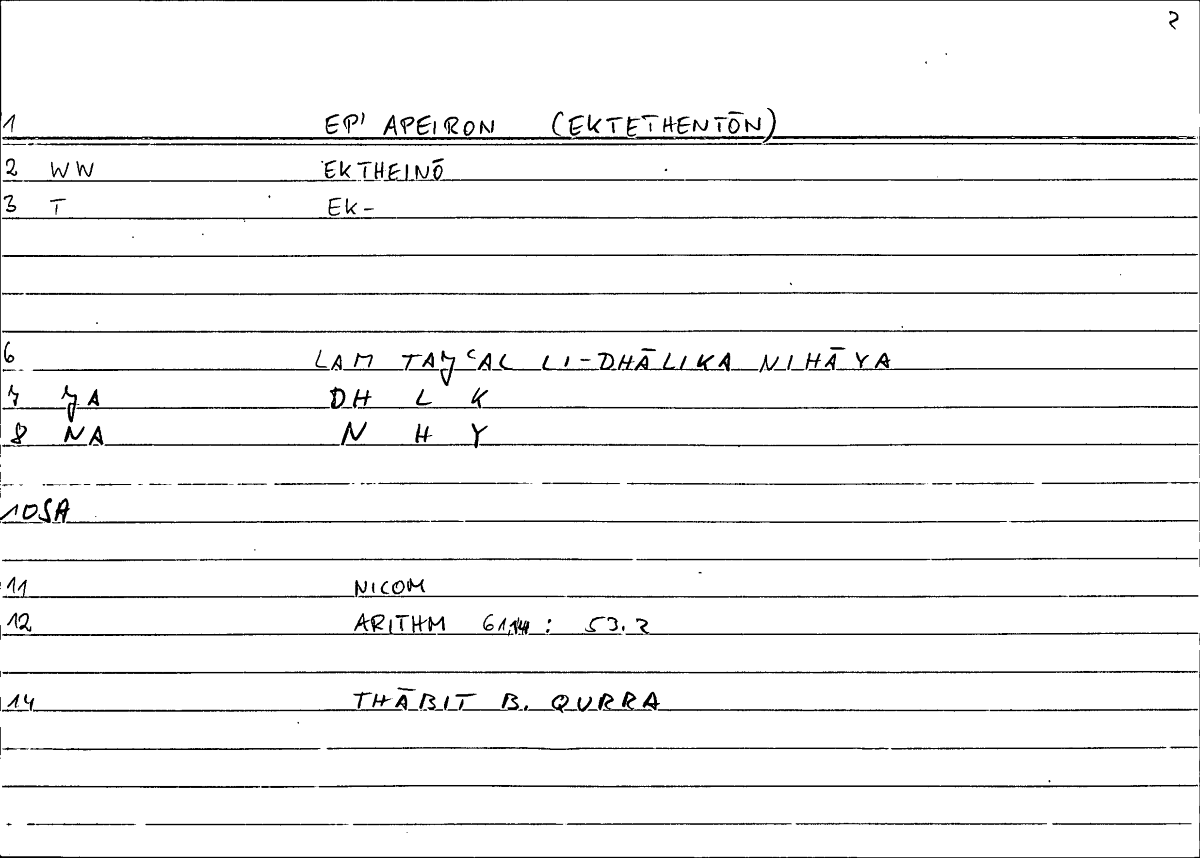 2
1 EP' APEIRON (EKTETHENTŌN)
2 WW EKTHEINŌ
3 T EK-
6 LAM TAJʿAL LI-DHĀLIKA NIHĀYA
7 JA DH L K
8 NA N H Y
10SA
11 NICOM
12 ARITHM 61,14 : 53.2
14 THĀBIT B. QURRA